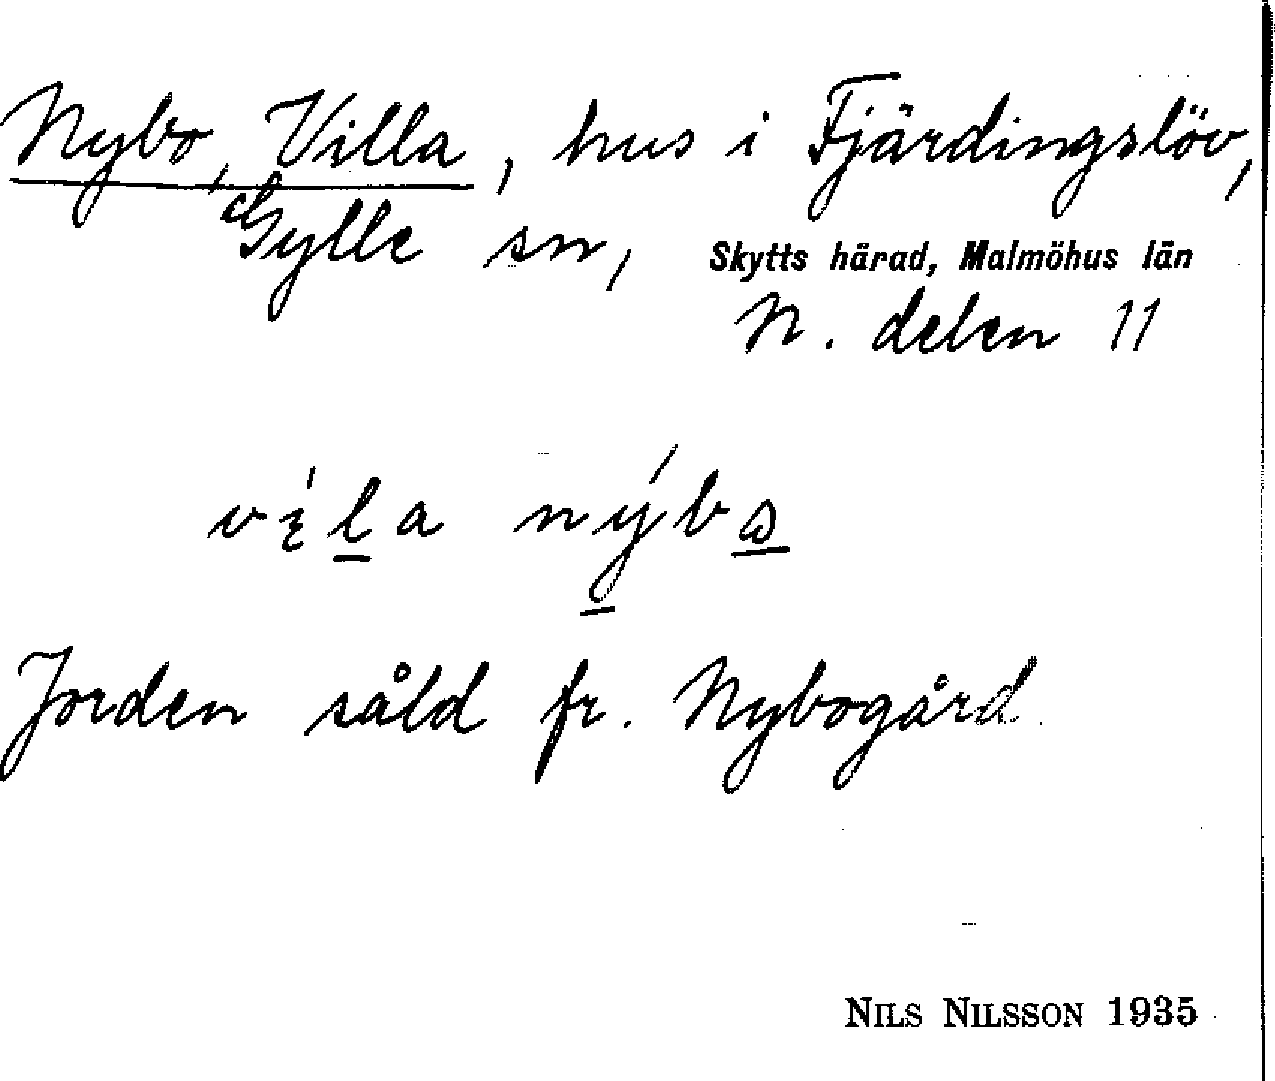 Nybo, Villa, hus i Fjärdingslöv,
Gylle sn, Skytts härad, Malmöhus län
N. delen 11
Jorden såld fr. Nybogård.
NILS NILSSON 1935